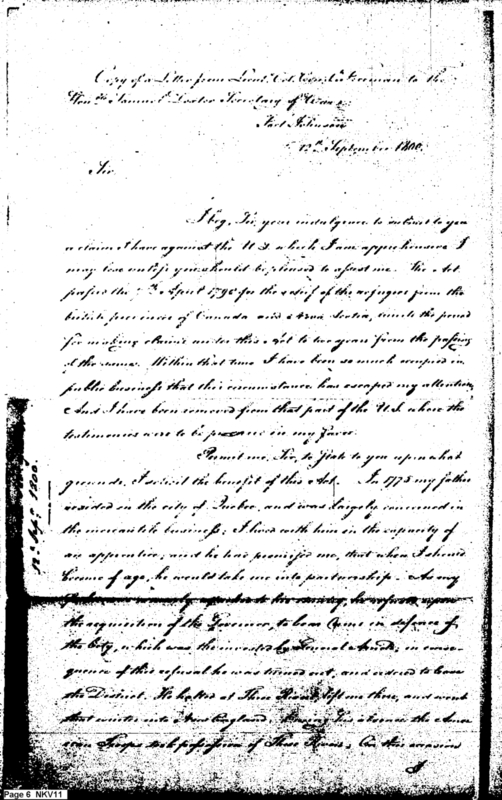 Copy of a Letter from Lieut. Col. Freeman to the
Hon. Samuel Dexter Secretary of War
Fort Johnson
12th September 1800.
Sir
I beg, Sir, your indulgence to submit to you
a claim I have against the U.S. which I am apprehensive I
may lose unless you should be pleased to assist me. The Act
passed the 7th April 1798 for the relief of the refugees from the
british provinces of Canada and Nova Scotia, limits the period
for making claims under this Act to two years from the passing
of the same. Within that time I have been so much occupied in
public business that this circumstance has escaped my attention,
And I have been removed from that part of the U.S. where the
testimonies were to be in my favor.
Permit me, Sir, to state to you upon what
grounds, I solicit the benefit of this Act. In 1775 my father
resided in the city of Quebec, and was largely concerned in
the mercantile business; I lived with him in the capacity of
an apprentice, and he had promised me, that when I should
become of age, he would take me into partnership. As my
he refused upon
the requisition of the Governor, to bear arms in defence of
the City, which was then invested by General Arnold; in conse-
quence of this refusal he was turned out, and ordered to leave
the District. He halted at Three Rivers, left me there, and went
that winter into New England; During his absence the Amer-
ican Troops took possession of Three Rivers; On this occasion
I
12th Sept. 1800.
Page 6 NKV11